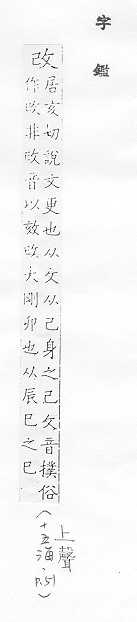 字鑑
改
居亥切說文更也从攵从己身之己攵音撲俗
作攺非攺音以效攺大剛卯也从辰巳之巳
(上聲
十五海、P.51)